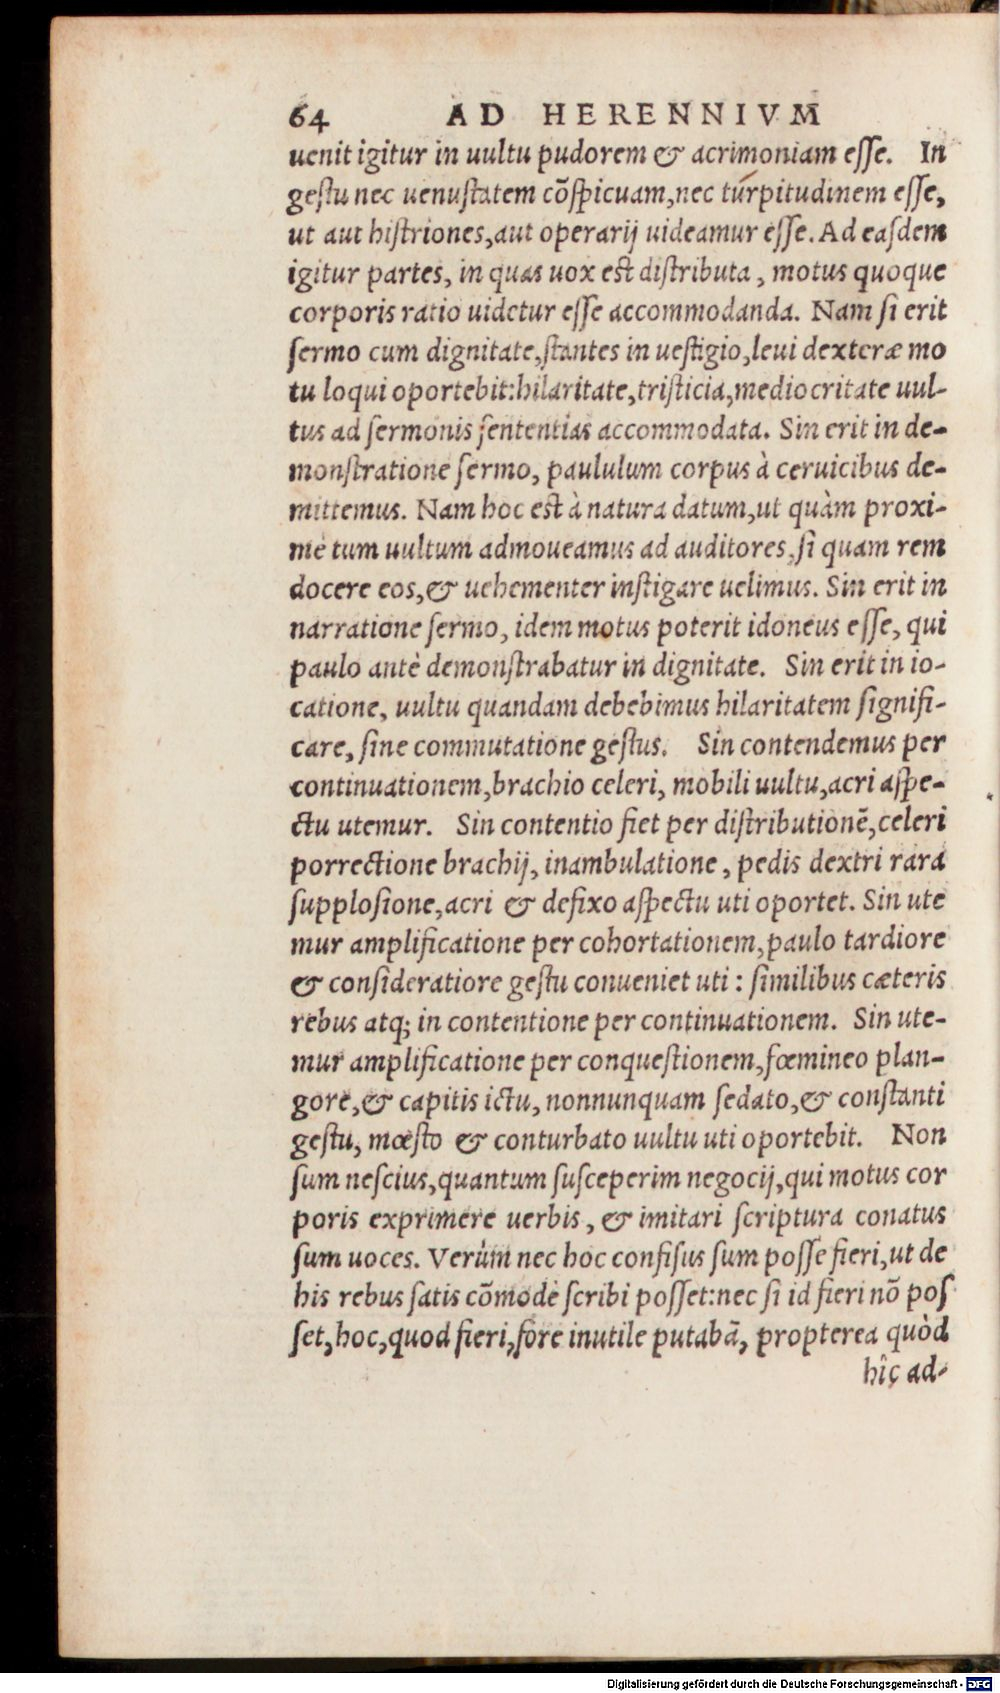 64 AD HERENNIVM
uenit igitur in uultu pudorem & acrimoniam esse. In
gestu nec uenustatem cõspicuam, nec turpitudinem esse,
ut aut histriones, aut operarij uideamur esse. Ad easdem
igitur partes, in quas uox est distributa, motus quoque
corporis ratio uidetur esse accommodanda. Nam si erit
sermo cum dignitate, stantes in uestigio, leui dexteræ mo
tu loqui oportebit: hilaritate, tristicia, mediocritate uul-
tus ad sermonis sententias accommodata. Sin erit in de-
monstratione sermo, paululum corpus à ceruicibus de-
mittemus. Nam hoc est à natura datum, ut quàm proxi-
me tum uultum admoueamus ad auditores, si quam rem
docere eos, & uehementer instigare uelimus. Sin erit in
narratione sermo, idem motus poterit idoneus esse, qui
paulo antè demonstrabatur in dignitate. Sin erit in io-
catione, uultu quandam debebimus hilaritatem signifi-
care, sine commutatione gestus. Sin contendemus per
continuationem, brachio celeri, mobili uultu, acri aspe-
ctu utemur. Sin contentio fiet per distributionẽ, celeri
porrectione brachij, inambulatione, pedis dextri rara
supplosione, acri & defixo aspectu uti oportet. Sin ute
mur amplificatione per cohortationem, paulo tardiore
& consideratiore gestu conueniet uti: similibus cæteris
rebus atq; in contentione per continuationem. Sin ute-
mur amplificatione per conquestionem, fœmineo plan-
gore, & capitis ictu, nonnunquam sedato, & constanti
gestu, mœsto & conturbato uultu uti oportebit. Non
sum nescius, quantum susceperim negocij, qui motus cor
poris exprimere uerbis, & imitari scriptura conatus
sum uoces. Verùm nec hoc confisus sum posse fieri, ut de
his rebus satis cõmodè scribi posset: nec si id fieri nõ pos
set, hoc, quod fieri, fore inutile putabã, propterea quòd
hîc ad-
Digitalisierung gefördert durch die Deutsche Forschungsgemeinschaft - DFG